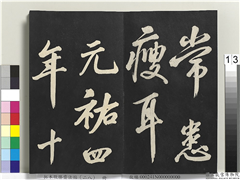 常患
瘦耳
元祐四
年十
13